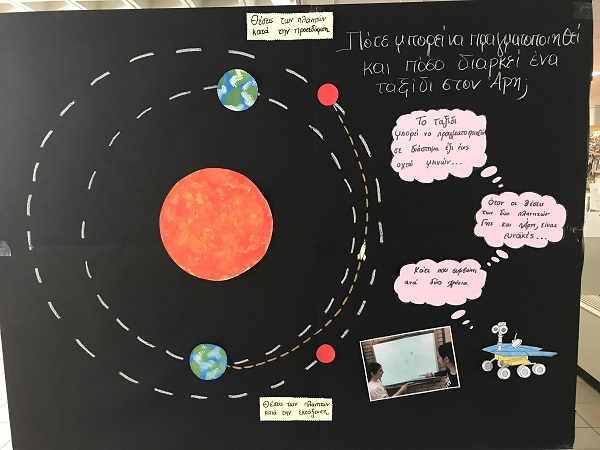 Θέσεις των πλανητών
κατά την προσεδάφιση.
Πότε μπορεί να πραγματοποιηθεί
και πόσο διαρκεί ένα
ταξίδι στον Άρη;
Το ταξίδι
μπορεί να πραγματοποιηθεί
σε διάστημα έξι έως
οχτώ μηνών...
Όταν οι θέσεις
των δύο πλανητών
Γης και Άρη, είναι
ευνοϊκές...
Κάτι που συμβαίνει
ανά δύο χρόνια.
Θέσεις των πλανητών
κατά την εκτόξευση.